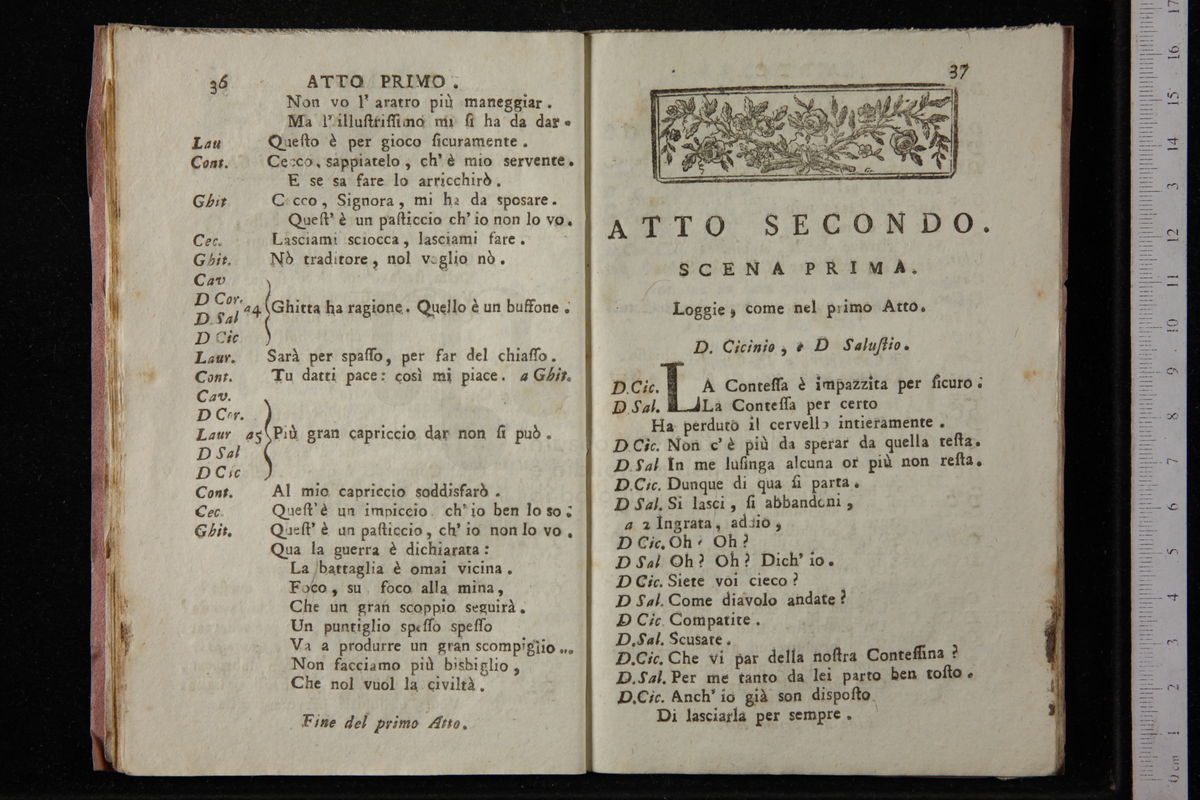 36 ATTO PRIMO.
Non vo l' aratro più maneggiar.
Ma l' illuſtriſſimo mi ſi ha da dar.
Lau Queſto è per gioco ſicuramente.
Cont. Cecco, sappiatelo, ch' è mio servente.
E se sa fare lo arricchirò.
Ghit Cecco, Signora, mi ha da sposare.
Queſt' è un paſticcio ch' io non lo vo.
Cec. Lasciami sciocca, lasciami fare.
Ghit. Nò traditore, nol voglio nò.
Cav
D Cor.
D. Sal a4 Ghitta ha ragione. Quello è un buffone.
D Cic
Laur. Sarà per spaſſo, per far del chiaſſo.
Cont. Tu datti pace: così mi piace. a Ghit.
Cav.
D Cor.
Laur a5 Più gran capriccio dar non ſi può.
D Sal
D Cic
Cont. Al mio capriccio soddisfarò.
Cec. Queſt' è un impiccio ch' io ben lo so.
Ghit. Queſt' è un paſticcio, ch' io non lo vo.
Qua la guerra è dichiarata:
La battaglia è omai vicina.
Foco, su foco alla mina,
Che un gran scoppio seguirà.
Un puntiglio speſſo speſſo
Va a produrre un gran scompiglio...
Non facciamo più bisbiglio,
Che nol vuol la civiltà.
Fine del primo Atto.
37
ATTO SECONDO.
SCENA PRIMA.
Loggie, come nel primo Atto.
D. Cicinio, e D Saluſtio.
D. Cic. LA Conteſſa è impazzita per ſicuro.
D. Sal. La Conteſſa per certo
Ha perduto il cervello intieramente.
D. Cic. Non c' è più da sperar da quella teſta.
D. Sal In me luſinga alcuna or più non reſta.
D. Cic. Dunque di qua ſi parta.
D Sal. Si lasci, ſi abbandoni,
a 2 Ingrata, addio,
D Cic. Oh? Oh?
D Sal Oh? Oh? Dich' io.
D Cic. Siete voi cieco?
D Sal. Come diavolo andate?
D Cic Compatite.
D. Sal. Scusate.
D. Cic. Che vi par della noſtra Conteſſina?
D. Sal. Per me tanto da lei parto ben toſto.
D. Cic. Anch' io già son dispoſto
Di lasciarla per sempre.